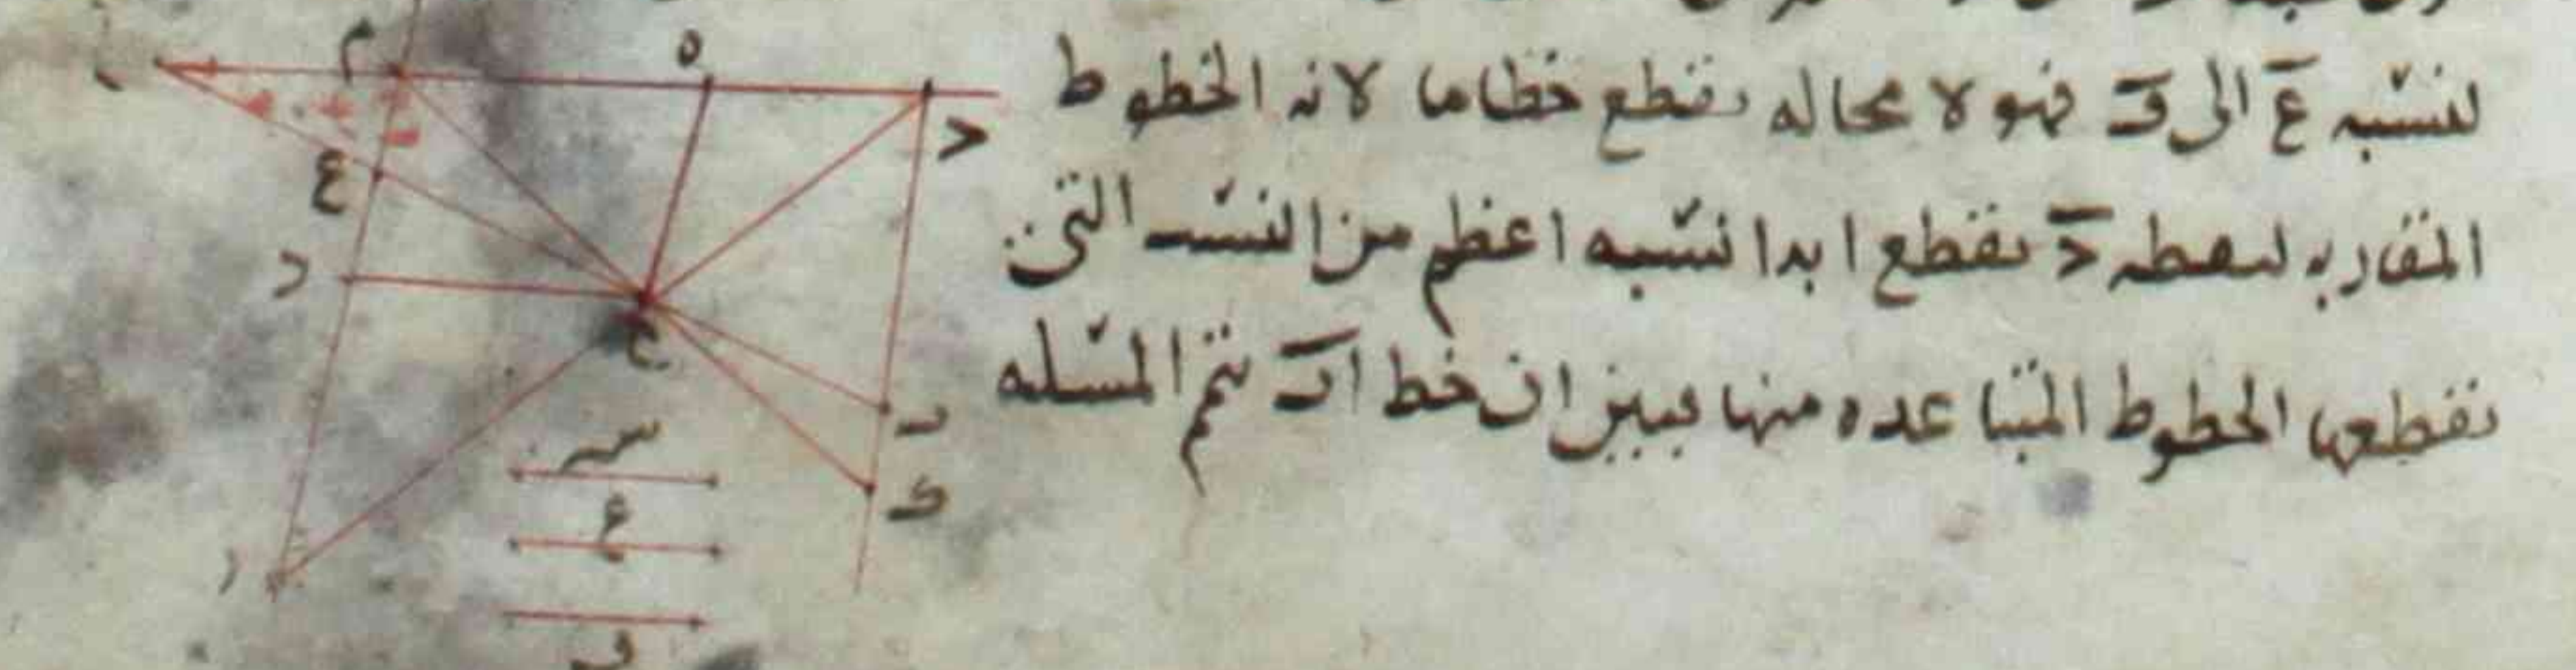 لنسبه ع الى ف فهو لا محاله يقطع خطا ما لانه الخطوط
المتقاربه لنقطه د يقطع ابدا نسبه اعظم من النسب التى
تقطعها الخطوط المتباعده منها فبين ان خط اك يتم المسله
م
ه
ع
د
ح
س
ع
ف